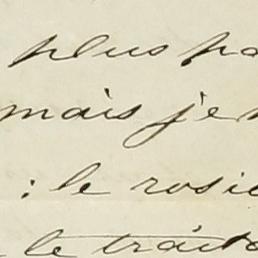 plus pa
mais je
: le rosie
le traite